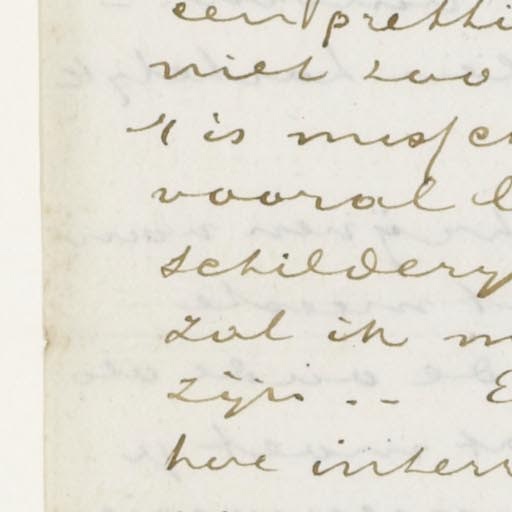 een pretti
niet zoo
't is missch
vooral l
schildery
zal ik m
zijn -- E
hoe inter